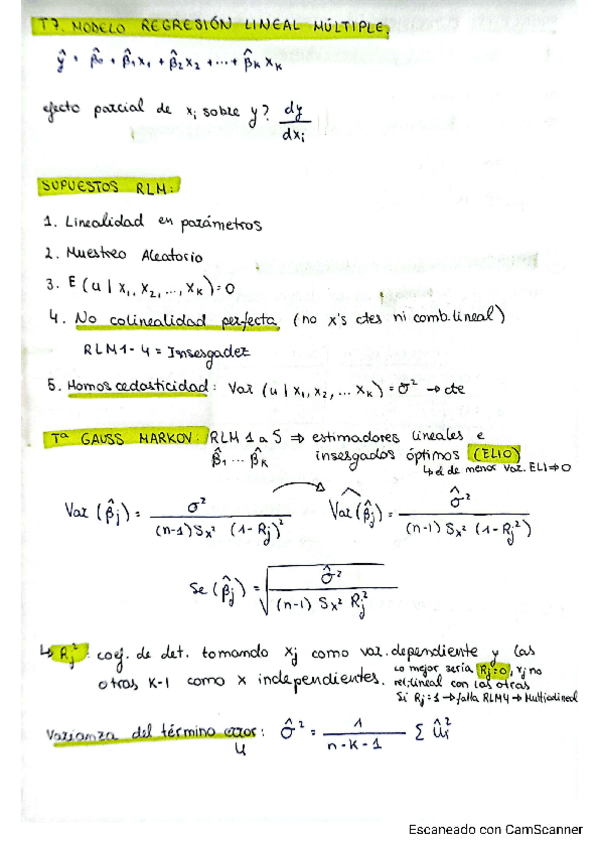 T7. MODELO REGRESIÓN LINEAL MÚLTIPLE.
ŷ = β̂₀ + β̂₁x₁ + β̂₂x₂ + ... + β̂ₖxₖ
efecto parcial de xⱼ sobre y? dy/dxⱼ
SUPUESTOS RLM:
1. Linealidad en parámetros
2. Muestreo Aleatorio
3. E (u | x₁, x₂, ..., xₖ) = 0
4. No colinealidad perfecta (no x's ctes ni comb. lineal)
RLM 1-4 = Insesgadez
5. Homoscedasticidad: Var (u | x₁, x₂, ... xₖ) = σ² → cte
Tª GAUSS MARKOV: RLM 1 a 5 ⇒ estimadores lineales e
β̂₁ ... β̂ₖ insesgados óptimos (ELIO)
↳ el de menor Var. ELI ⇒ O
Var (β̂ⱼ) = σ² / (n-1) Sx² (1-Rⱼ)² Var̂(β̂ⱼ) = σ̂² / (n-1) Sx² (1-Rⱼ²)
Se (β̂ⱼ) = √(σ̂² / (n-1) Sx² Rⱼ²)
↳ Rⱼ²: coef. de det. tomando xⱼ como var. dependiente y las
otras K-1 como x independientes. Lo mejor sería Rⱼ=0, xⱼ no
rel. lineal con las otras
Si Rⱼ=1 → falla RLM4 → Multicolineal
Varianza del término error: σ̂² = 1 / n-K-1 Σ ûᵢ²
u
Escaneado con CamScanner